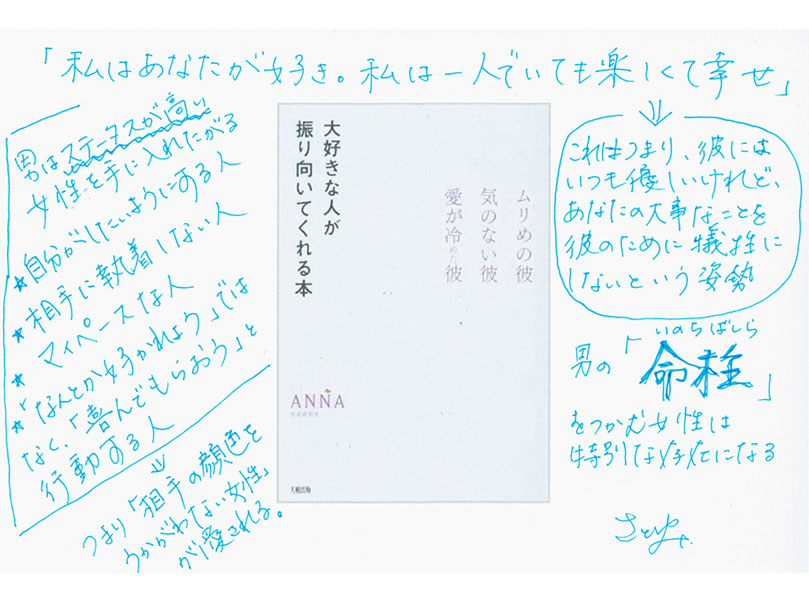 「私はあなたが好き。私は一人でいても楽しくて幸せ」
男はステータスが高い
女性を手に入れたがる
★自分がしたいようにする人
★相手に執着しない人
マイペースな人
★「なんとか好かれよう」では
なく、「喜んでもらおう」と
行動する人
つまり「相手の顔色を
うかがわない女性」
が愛される。
大好きな人が
振り向いてくれる本
ムリめの彼
気のない彼
愛が冷めた彼
ANNA
大和出版
これはつまり、彼には
いつも優しいけれど、
あなたの大事なことを
彼のために犠牲に
しないという姿勢
いのちばしら
男の「命柱」
をつかむ女性は
特別な存在になる